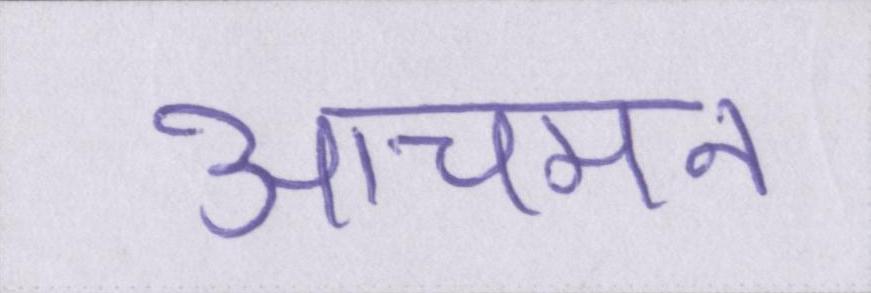 आचमन